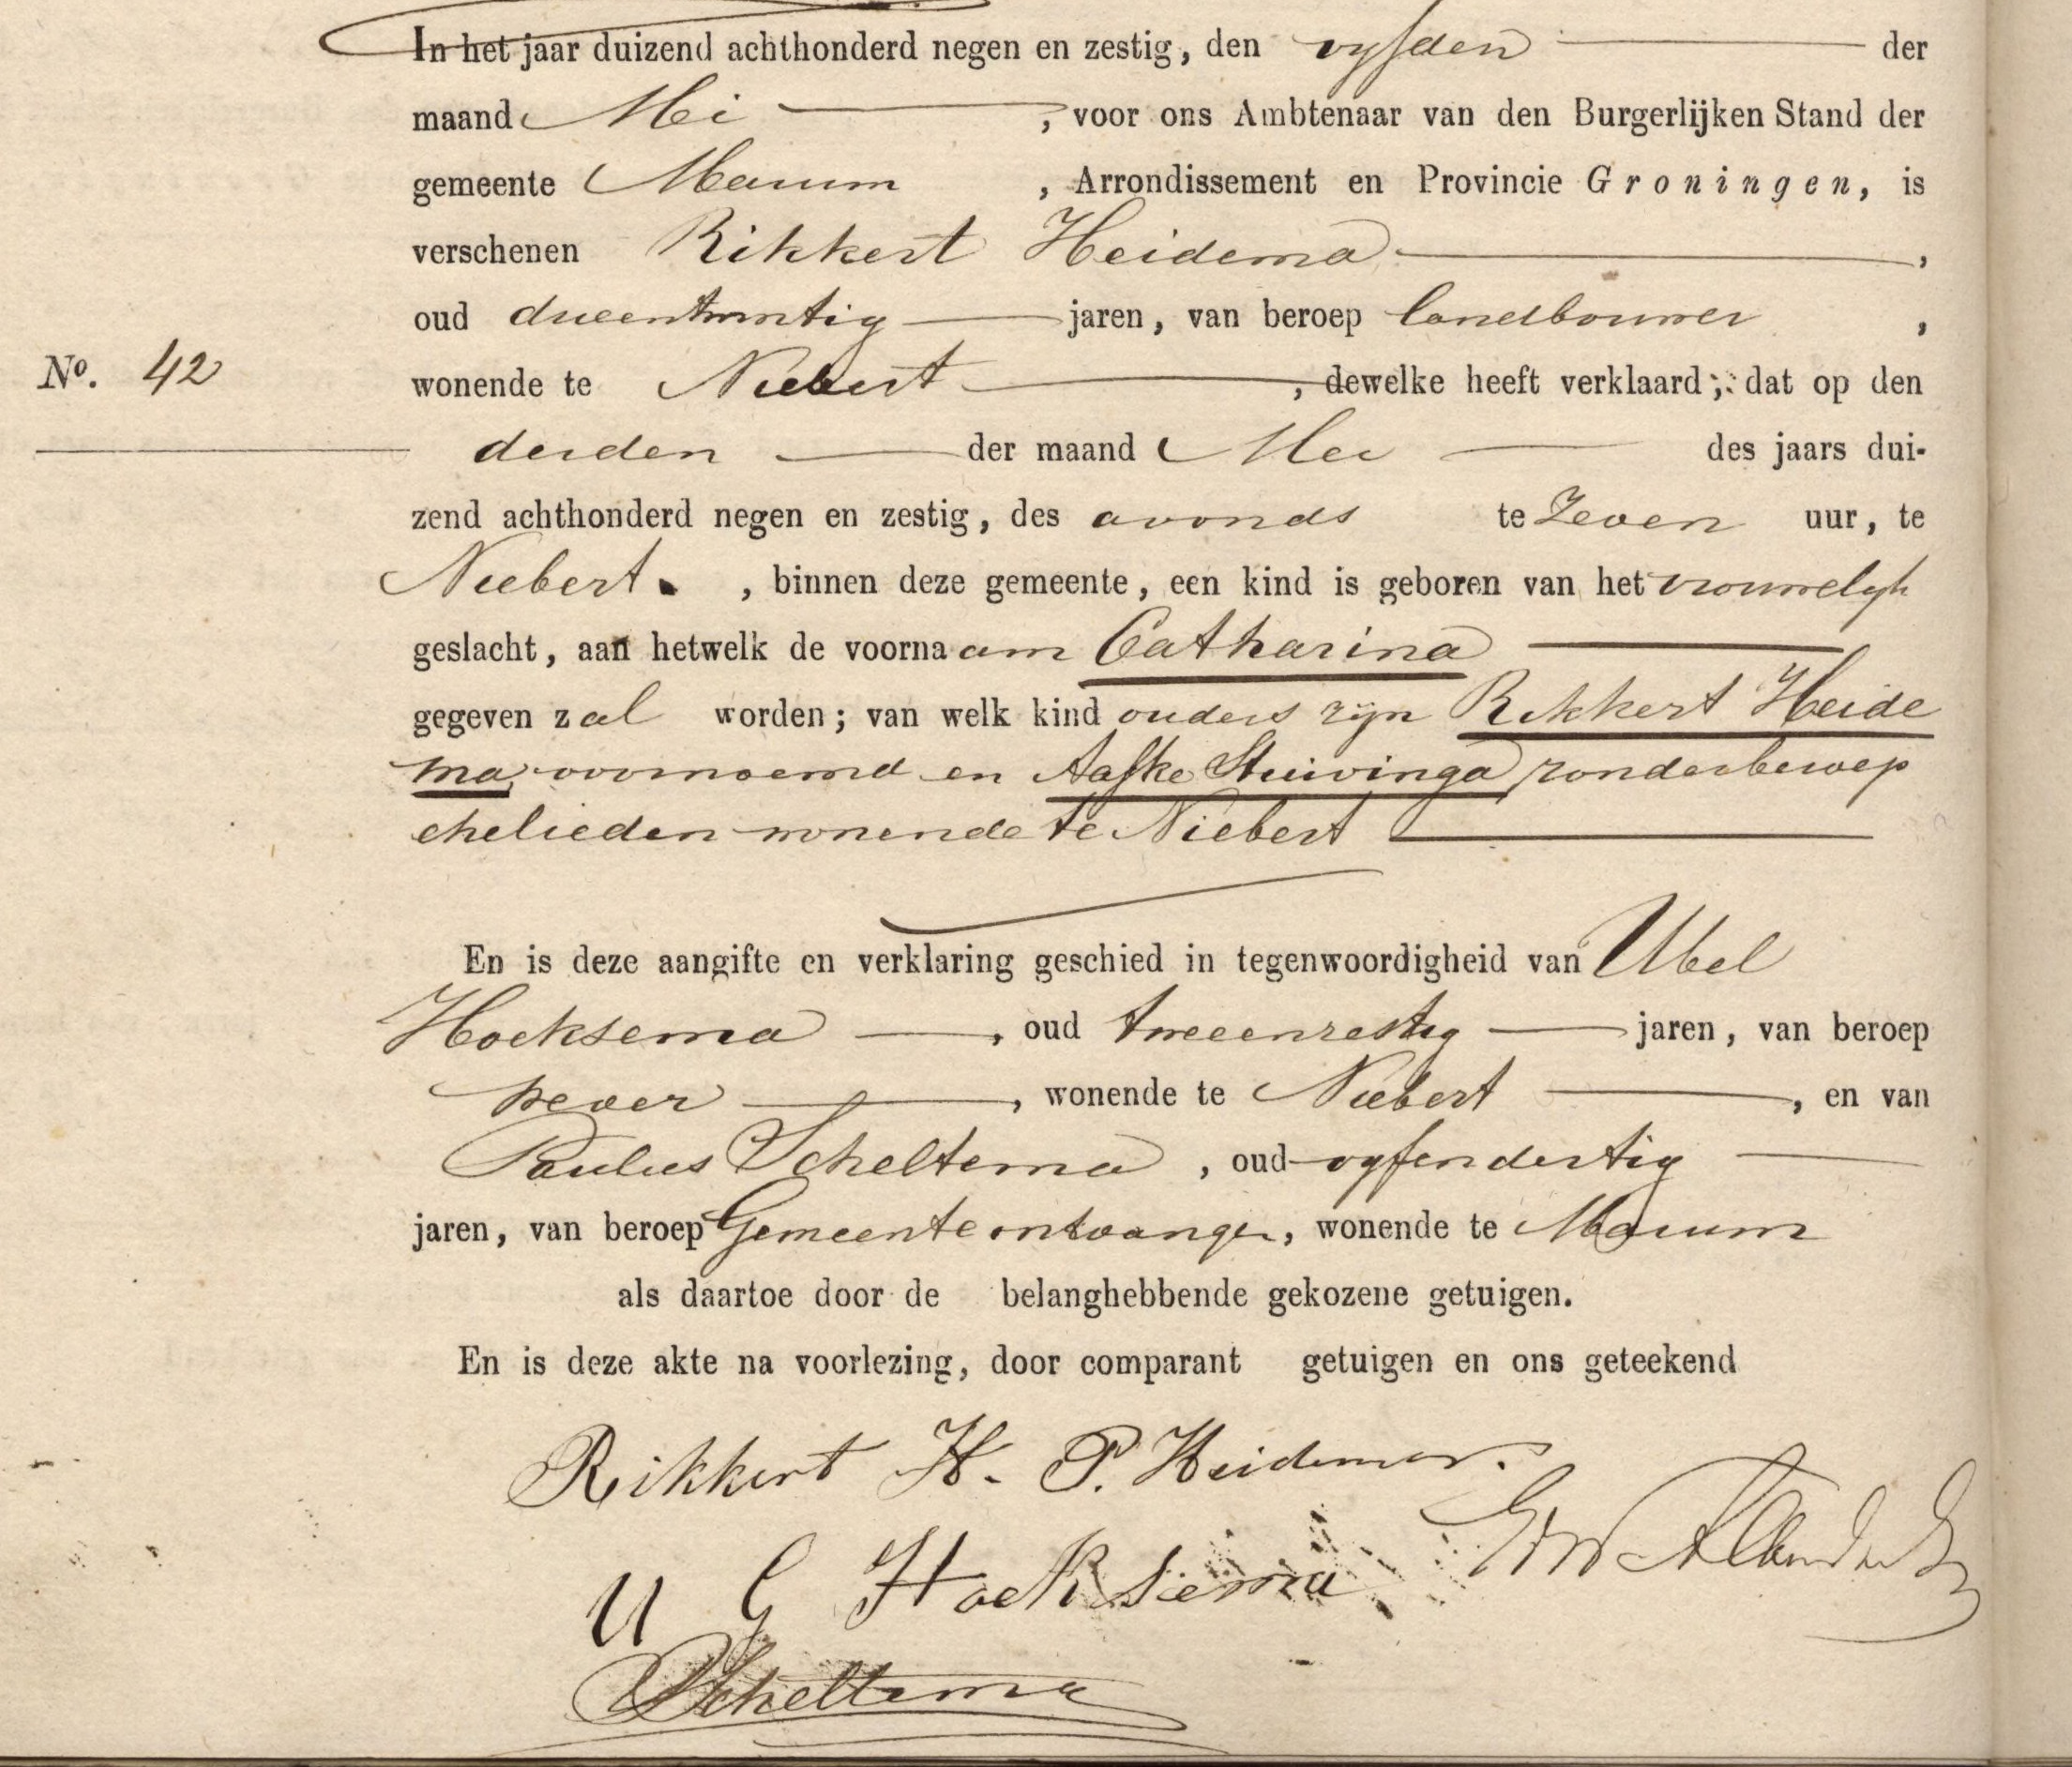 In het jaar duizend achthonderd negen en zestig, den vyfden der
maand Mei , voor ons Ambtenaar van den Burgerlijken Stand der
gemeente Marum , Arrondissement en Provincie Groningen, is
verschenen Rikkert Heidema ,
oud drieentwintig jaren, van beroep landbouwer ,
No. 42
wonende te Niebert , dewelke heeft verklaard; dat op den
derden der maand Mei des jaars dui-
zend achthonderd negen en zestig, des avonds te Zeven uur, te
Niebert. , binnen deze gemeente, een kind is geboren van het vrouwelyk
geslacht, aan hetwelk de voornaam Catharina
gegeven zal worden; van welk kind ouders zijn Rikkert Heide
ma, voornoemd en Aafke Stuivinga zonder beroep
echelieden wonende te Niebert
En is deze aangifte en verklaring geschied in tegenwoordigheid van Ubel
Hoeksema , oud tweeenzestig jaren, van beroep
wever , wonende te Niebert , en van
Paulus Scheltema , oud vyfendertig
jaren, van beroep Gemeente ontvanger, wonende te Marum
als daartoe door de belanghebbende gekozene getuigen.
En is deze akte na voorlezing, door comparant getuigen en ons geteekend
Rikkert H. P. Heidema.
U G Hoeksema
PScheltema